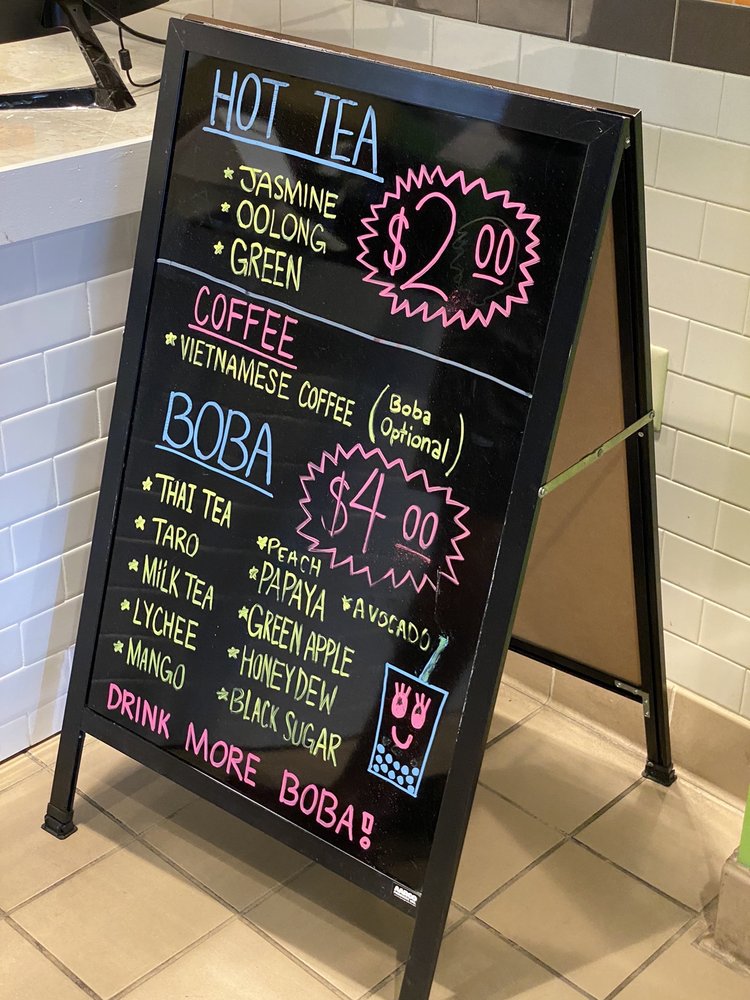 HOT TEA
*JASMINE
*OOLONG
*GREEN
$2.00
COFFEE
*VIETNAMESE COFFEE (Boba Optional)
BOBA
$4.00
*THAI TEA
*TARO
*MiLK TEA
*LYCHEE
*MANGO
*PEACH
*PAPAYA *AVOCADO
*GREEN APPLE
*HONEYDEW
*BLACK SUGAR
DRINK MORE BOBA!
AARCO